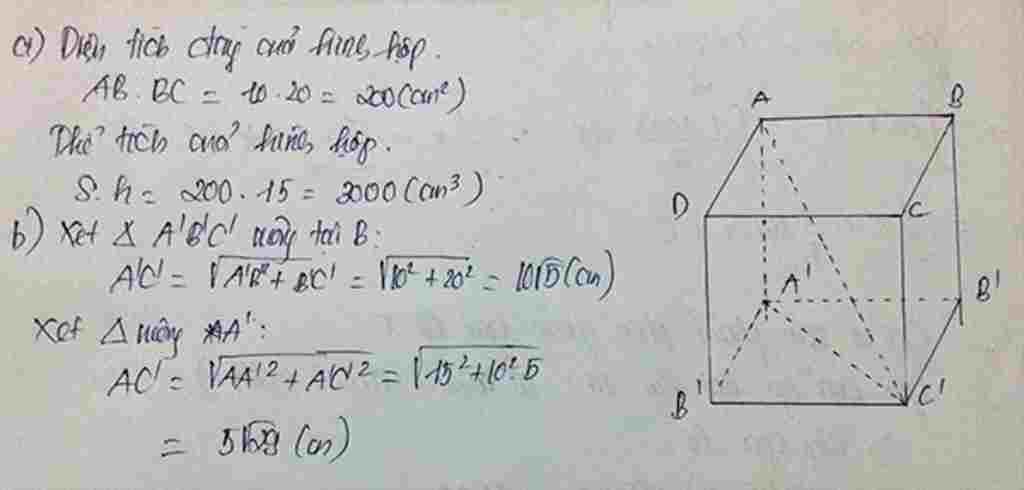 a) Diện tích đáy cuả hình hộp.
AB . BC = 10 . 20 = 200 (cm²)
Thể tích cuả hình hộp.
S. h = 200 . 15 = 3000 (cm³)
b) Xét Δ A'B'C' vuông tại B:
A'C' = √A'B'² + BC' = √10² + 20² = 10√5 (cm)
Xét Δ vuông AA':
AC' = √AA'² + A'C'² = √15² + 10².5
= 5√29 (cm)
A B
D C
A' B'
B' C'